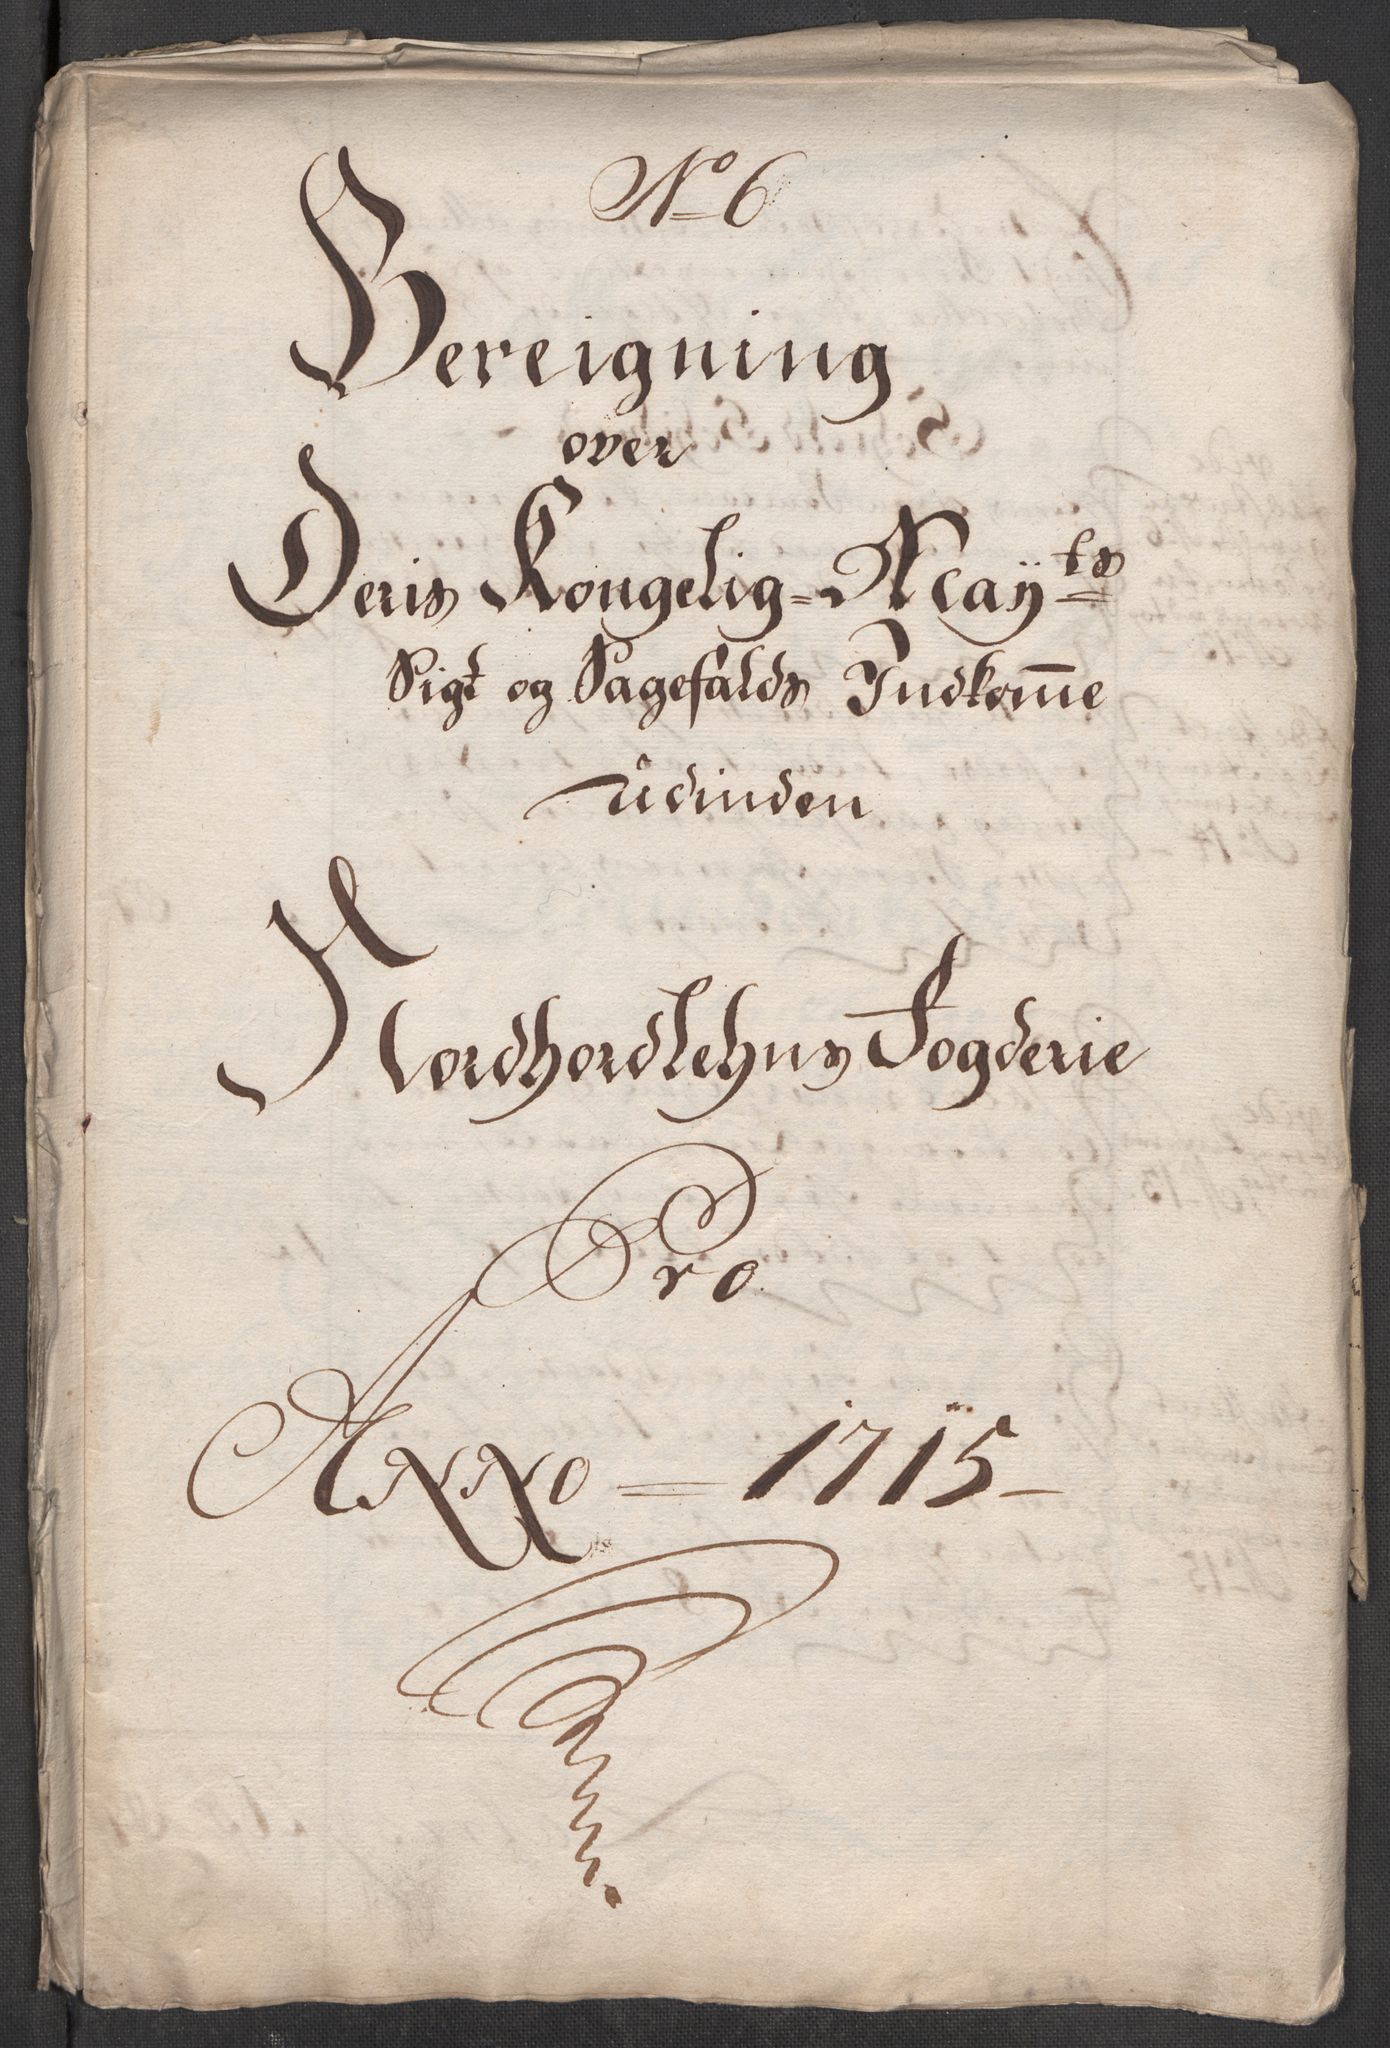 No 6
Bereigning
over
Deris Kongelig= Mayts
Sigt og Sagefalds Indkome
udinden
Nordhordlehns Fogderie
Pro
Anno = 1715 -